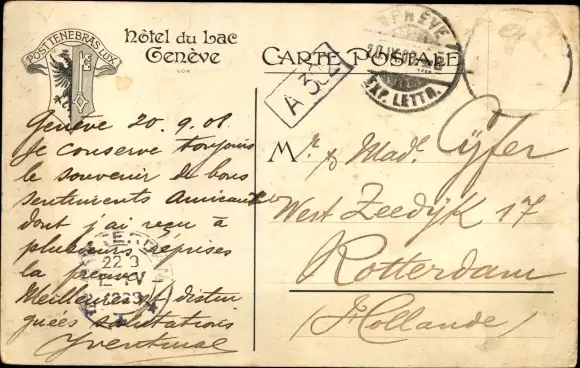 POST TENEBRAS LUX
Hôtel du Lac
Genève
CARTE POSTALE
GENÈVE
EXP. LETTR.
A 382
Genève 20.9.08
Je conserve toujours
le souvenir de bons
sentiments amicaux
dont j'ai reçu à
plusieurs reprises
la preuve
Meilleures & distin
guées salutations
M.r & Mad.e Cijfer
West Zeedijk 17
Rotterdam
(Hollande)